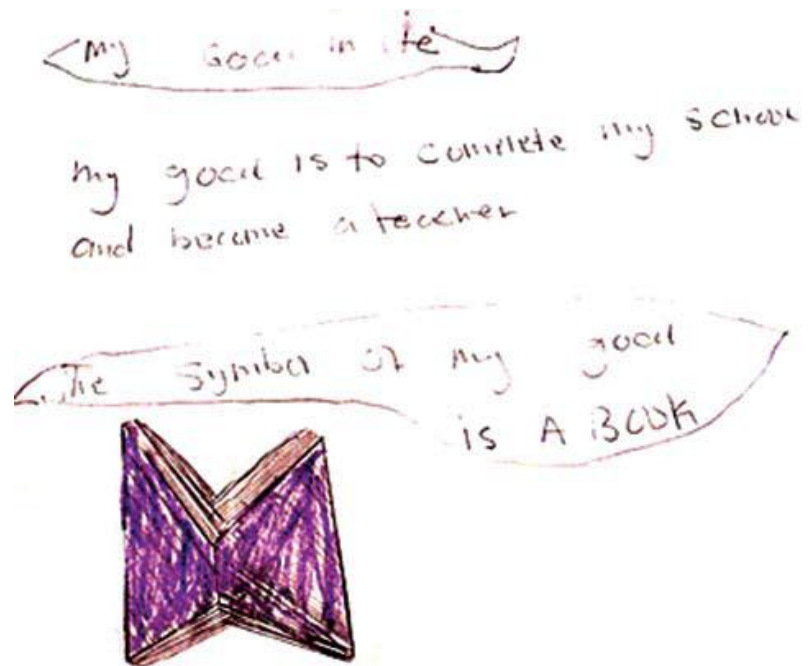 My Goal in life
my goal is to complete my school
and become a teacher
The Symbol of my goal
is A BOOK